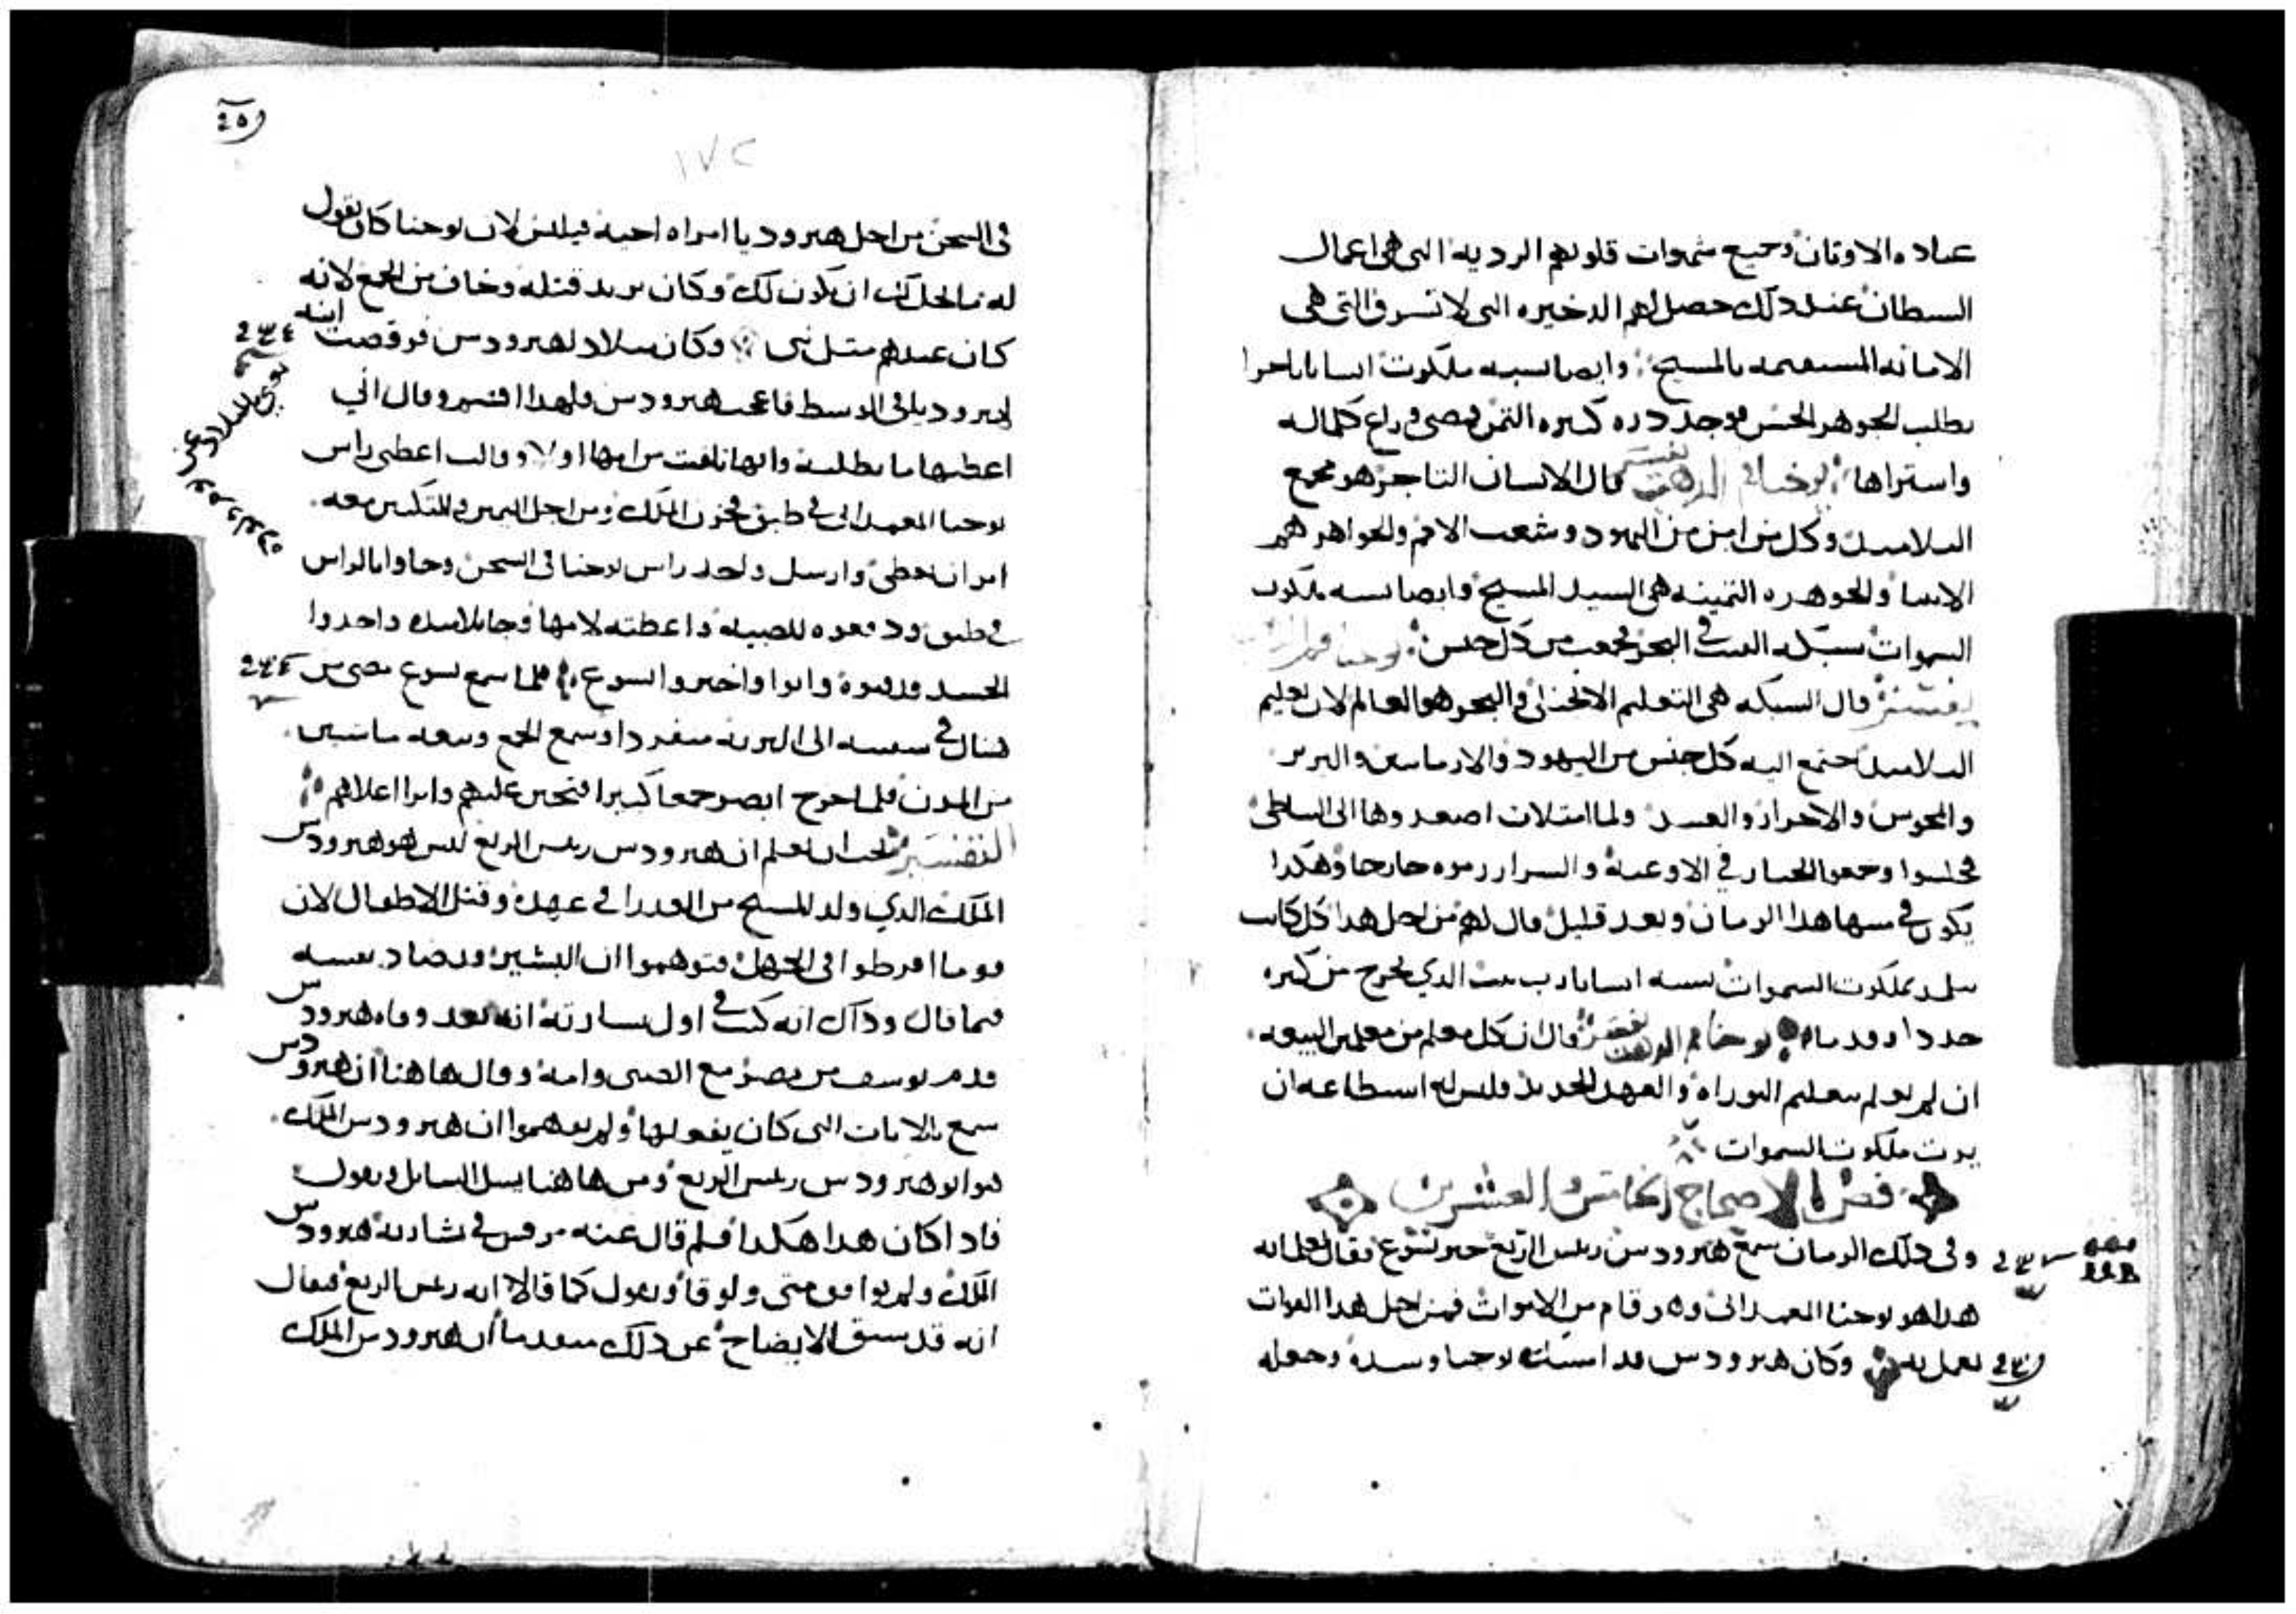 عباده الاوثان وجميع شهوات قلوبهم الرديه التى هى اعمال
السطان عند دلك حصل لهم الدخيره التى لا تسرق التى هى
الامانه المستقيمه بالمسيح وايضا يسبه ملكوت انسانا تاجرا
يطلب الجوهر الحسن فوجد دره كبيره الثمن فمضى وباع كلماله
واستراها يوحنا فم الدهب تفسير قال الانسان التاجر هو مجمع
التلاميد وكل من امن من اليهود وشعب الامم والجواهر هم
الانبيا والجوهره الثمينه هى السيد المسيح وايضا يسبه ملكوت
السموات سبكه القيت فى البحر فجمعت من كل جنس يوحنا فم الدهب
يفسر قال السبكه هى التعليم الانجيلى والبحر هو العالم لان تعليم
التلاميد اجتمع اليه كل جنس من اليهود والارمانيين والبربر
والمجوس والاحرار والعبيد ولما امتلات اصعدوها الى الساطئ
فجلسوا وجمعوا الخيار فى الاوعيه والسرار رموه خارجا وهكدا
يكون فى منتها هدا الزمان وبعد قليل قال لهم من اجل هدا كل كاتب
يتلمد لملكوت السموات يسبه انسانا رب بيت الدي يخرج من كنزه
جددا وقدما يوحنا فم الدهب تفسير قال ان كل معلم من معلمين البيعه
ان لم يعلم بتعليم التوراه والعهد الجديد فليس له استطاعه ان
يرث ملكوت السموات
فصل الاصحاح الخامس والعشرين
وفى دلك الزمان سمع هيرودس ريس الربع خبر يسوع فقال لغلمانه
هدا هو يوحنا المعمدانى وهو قام من الاموات فمن اجل هدا القوات
تعمل به وكان هيرودس قد امسك يوحنا وسده وجعله
١٧٢
فى السجن من اجل هيروديا امراه اخيه فيلبس لان يوحنا كان يقول
له ما تحل لك ان تكون لك وكان يريد قتله وخاف من الجمع لانه
كان عندهم مثل نبى وكان ميلاد لهيرودس فرقصت ابنه
هيروديا فى الوسط فاعجب هيرودس ولهدا اقسم وقال انى
اعطيها ما تطلبه وانها تلقت من امها اولا وقالت اعطنى راس
يوحنا المعمدانى فى طبق فحزن الملك ومن اجل اليمين والمتكيين معه
امر ان تعطى وارسل واخد راس يوحنا فى السجن وجاوا بالراس
فى طبق ودفعوه للصبيه واعطته لامها فجا تلاميده واخدوا
الجسد ودفنوه واتوا واخبروا يسوع فلما سمع يسوع مضى من
هناك فى سفينه الى البريه منفردا وسمع الجمع وتبعه ماشيين
من المدن فلما خرج ابصر جمعا كبيرا فتحنن عليهم وابرا اعلاهم
التفسير يجب ان نعلم ان هيرودس ريس الربع ليس هو هيرودس
الملك الدي ولد المسيح من العدرا فى عهده وقتل الاطفال لان
قوما افرطوا فى الجهل فتوهموا ان البشير قد ضاد نفسه
فيما قال وداك انه كتب فى اول بسارته انه بعد وفاه هيرودس
قدم يوسف من مصر مع الصبى وامه وقال هاهنا ان هيرودس
سمع بالايات التى كان يفعلها ولم يفهموا ان هيرودس الملك
هو ابو هيرودس ريس الربع ومن هاهنا يسل السايل ويقول
فادا كان هدا هكدا فلم قال عنه مرقس فى بشارته هيرودس
الملك ولم يوافق متى ولوقا ويقول كما قالا انه ريس الربع فيقال
انه قد سبق الايضاح عن دلك متقدما ان هيرودس الملك